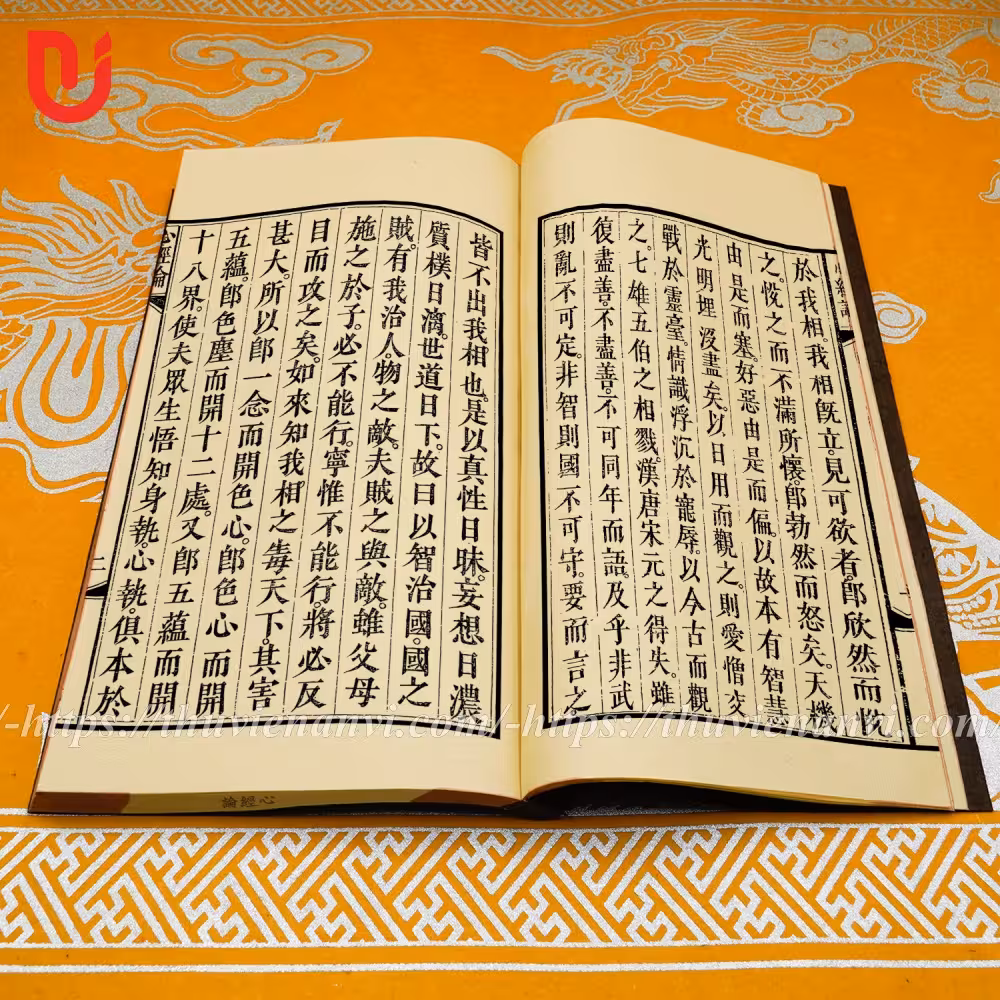 於我相。我相既立。見可欲者。卽欣然而悅
之。悅之而不滿所懷。卽勃然而怒矣。天機
由是而塞。好惡由是而偏。以故本有智慧
光明埋沒盡矣。以日用而觀之。則愛憎交
戰於靈臺。情識浮沉於寵辱。以今古而觀
之。七雄五伯之相戮。漢唐宋元之得失。雖
復盡善。不盡善。不可同年而語。及乎非武
則亂不可定。非智則國不可守。要而言之
皆不出我相也。是以真性日昧。妄想日濃
質樸日漓。世道日下。故曰以智治國。國之
賊。有我治人。物之敵。夫賊之與敵。雖父母
施之於子。必不能行。寧惟不能行。將必反
目而攻之矣。如來知我相之毒天下。其害
甚大。所以卽一念而開色心。卽色心而開
五蘊。卽色塵而開十二處。又卽五蘊而開
十八界。使夫眾生悟知身執。心執。俱本於
心經論
二
心經論
/-https://thuvienanvi.com/-https://thuvienanvi.com/